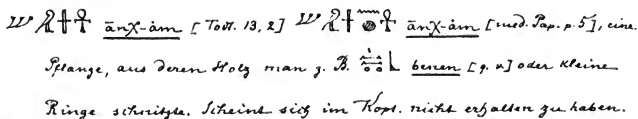 ānχ-ȧm [Todt. 13, 2] ānχ-ȧm [med. Pap. p. 5], eine
Pflanze, aus deren Holz man z. B. benen [q. v] oder kleine
Ringe schnitzte. Scheint sich im Kopt. nicht erhalten zu haben.